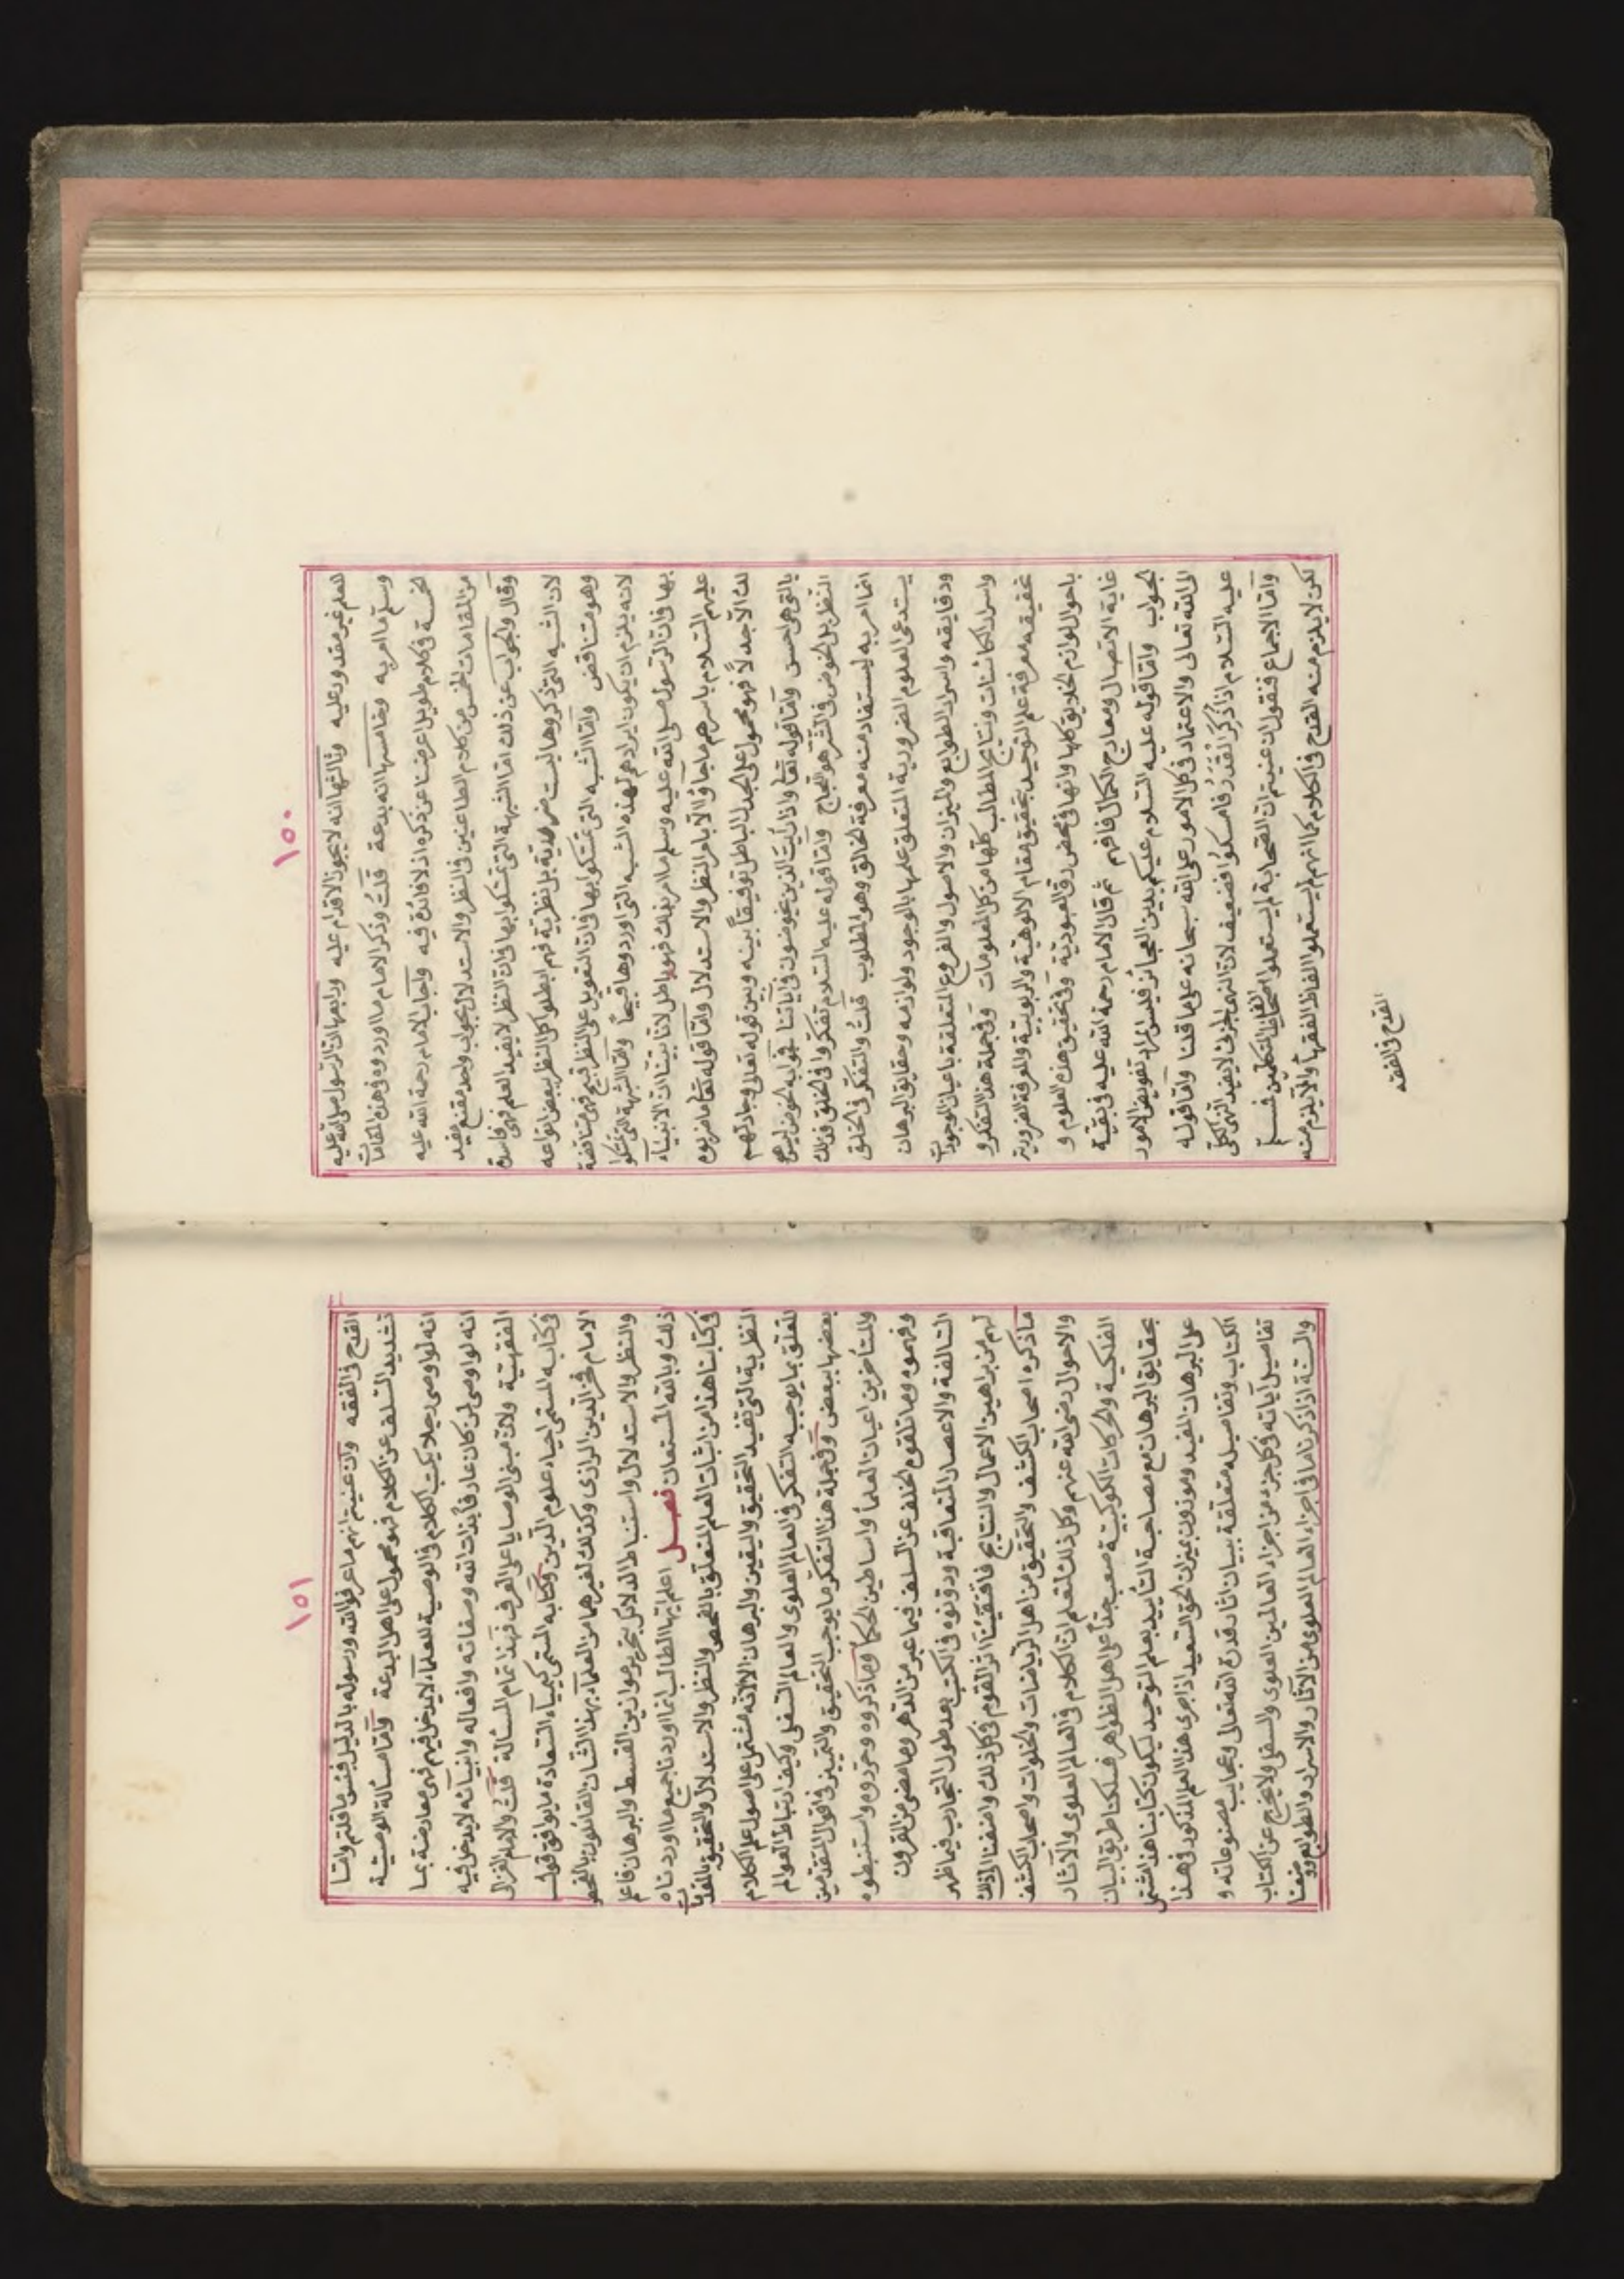 ١٥٠
للعلم غير مقدور عليه وثالثها انه لا يجوز الاقدام عليه ورابعها ان الرسول صلى الله عليه
وسلم ما امر به وخامسها انه بدعة قلت وذكر الامام ما اوردوه في هذه المقامات
الخمسة في كلام طويل اعرضنا عن ذكره اذ لا فائدة فيه واجاب الامام رحمة الله عليه
من المقامات الخمس من كلام الطاعنين في النظر والاستدلال بجواب واحد مقنع مفيد
وقال والجواب عن ذلك اما الشبهة التي تمسكوا بها في ان النظر لا يفيد العلم فهي فاسدة
لان الشبه التي ذكروها ليست ضرورية بل نظرية فهم ابطلوا كل النظر ببعض انواعه
وهو متناقض واما الشبه التي تمسكوا بها في ان التعويل على النظر قبيح فهي متناقضة
لانه يلزم ان يكون ايرادهم لهذه الشبه التي اوردوها قبيحاً واما الشبهة التي تمسكوا
بها في ان الرسول صلى الله عليه وسلم ما امر بذلك فهو باطل لانا بينا ان الانبياء
عليهم السلام باسرهم ما جاؤا الا بالامر بالنظر والاستدلال واما قوله تعالى ما ضربوه
لك الا جدلاً فهو محمول على الجدل الباطل توفيقاً بينه وبين قوله تعالى وجادلهم
بالتي هي احسن واما قوله تعالى واذا رايت الذين يخوضون في اياتنا فجوابه الخوض ليس هو
النظر بل الخوض في الشئ هو اللجاج واما قوله عليه السلام تفكروا في الخلق فذلك
انما امر به ليستفاد منه معرفة الخالق وهو المطلوب قلت والتفكر في الخلق
يستدعى العلوم الضرورية المتعلق علمها بالوجود ولوازمه وحقايق البرهان
ودقايقه واسرار الطوابع والميزان والاصول والفروع المتعلقة باعيان الموجودات
واسرار الكائنات ونتايج المطالب كلها من كل المعلومات وفي جملة هذا التفكر و
تحقيقه معرفة علم التوحيد بتحقيق مقام الالوهية والربوبية والمعرفة الضرورية
باحوال لوازم الخلايق كلها وانها في محض رق العبودية وفي تحقيق هذه العلوم و
غاية الاتصال ومعارج الكمال فافهم ثم قال الامام رحمة الله عليه في بقية
الجواب واما قوله عليه السلام عليكم بدين العجائز فليس المراد تفويض الامور
الى الله تعالى والاعتماد في كل الامور على الله سبحانه على ما قلنا واما قوله
عليه السلام اذا ذكر القدر فامسكوا فضعيف لان النهي الجزئي لا يفيد النهي الكلي
واما الاجماع فنقول ان عنيتم ان الصحابة لم يستعملوا الفاظ المتكلمين فمسلم
لكن لا يلزم منه القدح في الكلام كما انهم لم يستعملوا الفاظ الفقهاء ولا يلزم منه
القدح في الفقه
١٥١
القدح في الفقه وان عنيتم انهم ما عرفوا الله ورسوله بالدليل فبئس ما قلتم واما
تشديد السلف عن الكلام فهو محمول على اهل البدعة واما مسألة الوصية
انه لو اوصى رجلا يكتب الكلام في الوصية للعلماء لا يدخل فيهم فهي معارضة بما
انه لو اوصى لمن كان عارفاً بذات الله وصفاته وافعاله وانبيائه لا يدخل فيه
الفقهيّة ولان مبنى الوصايا على العرف فهذا تمام المسألة قلت والامام الغزالى
في كتابه المسمى احياء علوم الدين وكتابه المسمى كيمياء السعادة ما يوافق قول
الامام فخر الدين الرازى وكذلك لغيرهما من العلماء بهذا الشان القائلون بالفحص
والنظر والاستدلال واستنباط الدلائل بتحرير موازين القسط والبرهان فاعلم
ذلك وبالله المستعان فصل اعلم ايها الطالب انما اوردنا جميع ما اوردناه
في كتابنا هذا من اثبات العلم المتعلق بالفحص والنظر والاستدلال والتحقيق بالمقدمات
النظرية التي تفيد التحقيق واليقين والبرهان الا لانه مشتمل على اصول علم الكلام
المتعلق بما يوجبه التفكر في العالم العلوى والعالم السفلى وكيف ارتباط العوالم
بعضها ببعض وفي جملة هذا التفكر ما يوجب التحقيق والتمييز في اقوال المتقدمين
والمتأخرين اعيان العلماء واساطين الحكماء وما ذكروه وحرروه واستنبطوه
وفهموه وما تلقوه الخلف عن السلف فيما عبر من الدهر وما مضى من القرون
السالفة والاعصار المتعاقبة ودونوه في الكتب بعد طول التجارب فيما ظهر
لهم من براهين الاعمال والنتايج فاقتفينا اثر القوم في كل ذلك واضفنا الى ذلك
ما ذكره اصحاب الكشف والتحقيق من اهل الرياضات والخلوات واصحاب الكشف
والاحوال رضى الله عنهم وكل ذلك لتعلم ان الكلام في العالم العلوى والآثار
الفلكية والحركات الكوكبية صعب جداً على اهل الظواهر فسلكنا طريق البيان
بحقايق البرهان مع مصاحبة التأييد بعلم التوحيد ليكون كتابنا هذا مشتمل
على البرهان المفيد وموزون بميزان الحق السعيد اذا جرى هذا العلم المذكور في هذا
الكتاب وتفاصيله متعلقة ببيان اثار قدرة الله تعالى وعجايب مصنوعاته و
تفاصيل آياته في كل جزء من اجزاء العالمين العلوى والسفلى ولا يخرج عن الكتاب
والسنة اذا ذكرنا ما في اجزاء العالم العلوى من الآثار والاسرار والطوابع ووصفنا